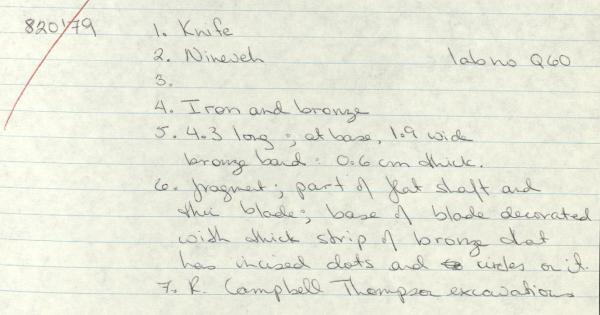 820'79 1. Knife
2. Nineveh lab no Q60
3.
4. Iron and bronze
5. 4.3 long; at base, 1.9 wide
bronze band: 0.6 cm thick.
6. fragment; part of flat shaft and
thin blade; base of blade decorated
with thick strip of bronze that
has incised dots and circles on it.
7. R. Campbell Thompson excavations